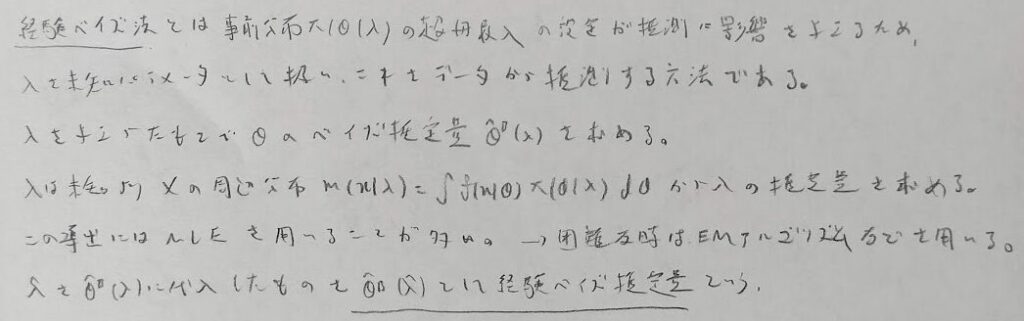 経験ベイズ法とは事前分布π(θ|λ)の超母数λの設定が推測に影響を与えるため,
λを未知パラメータとして扱い、これをデータから推測する方法である。
λを与えたもとでθのベイズ推定量 θ̂ᴮ(λ)を求める。
λは未知よりXの周辺分布 m(x|λ)=∫f(x|θ)π(θ|λ)dθ からλの推定量を求める。
この導出にはMLEを用いることが多い。→困難な時はEMアルゴリズムなどを用いる。
λ̂をθ̂ᴮ(λ)に代入したものをθ̂ᴮ(λ̂)として経験ベイズ推定量という.